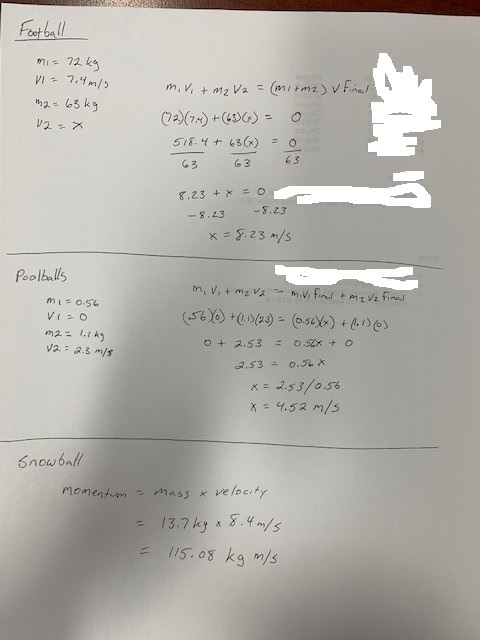 Football
m1 = 72 kg
V1 = 7.4 m/s
m2 = 63 kg
V2 = x
m1V1 + m2V2 = (m1+m2) V final
(72)(7.4) + (63)(x) = 0
518.4 + 63(x) = 0
63 63 63
8.23 + x = 0
-8.23 -8.23
x = 8.23 m/s
Poolballs
m1 = 0.56
V1 = 0
m2 = 1.1 kg
V2 = 2.3 m/s
m1V1 + m2V2 = m1V1 final + m2V2 final
(.56)(0) + (1.1)(2.3) = (0.56)(x) + (1.1)(0)
0 + 2.53 = 0.56x + 0
2.53 = 0.56x
x = 2.53/0.56
x = 4.52 m/s
Snowball
momentum = mass x velocity
= 13.7 kg x 8.4 m/s
= 115.08 kg m/s